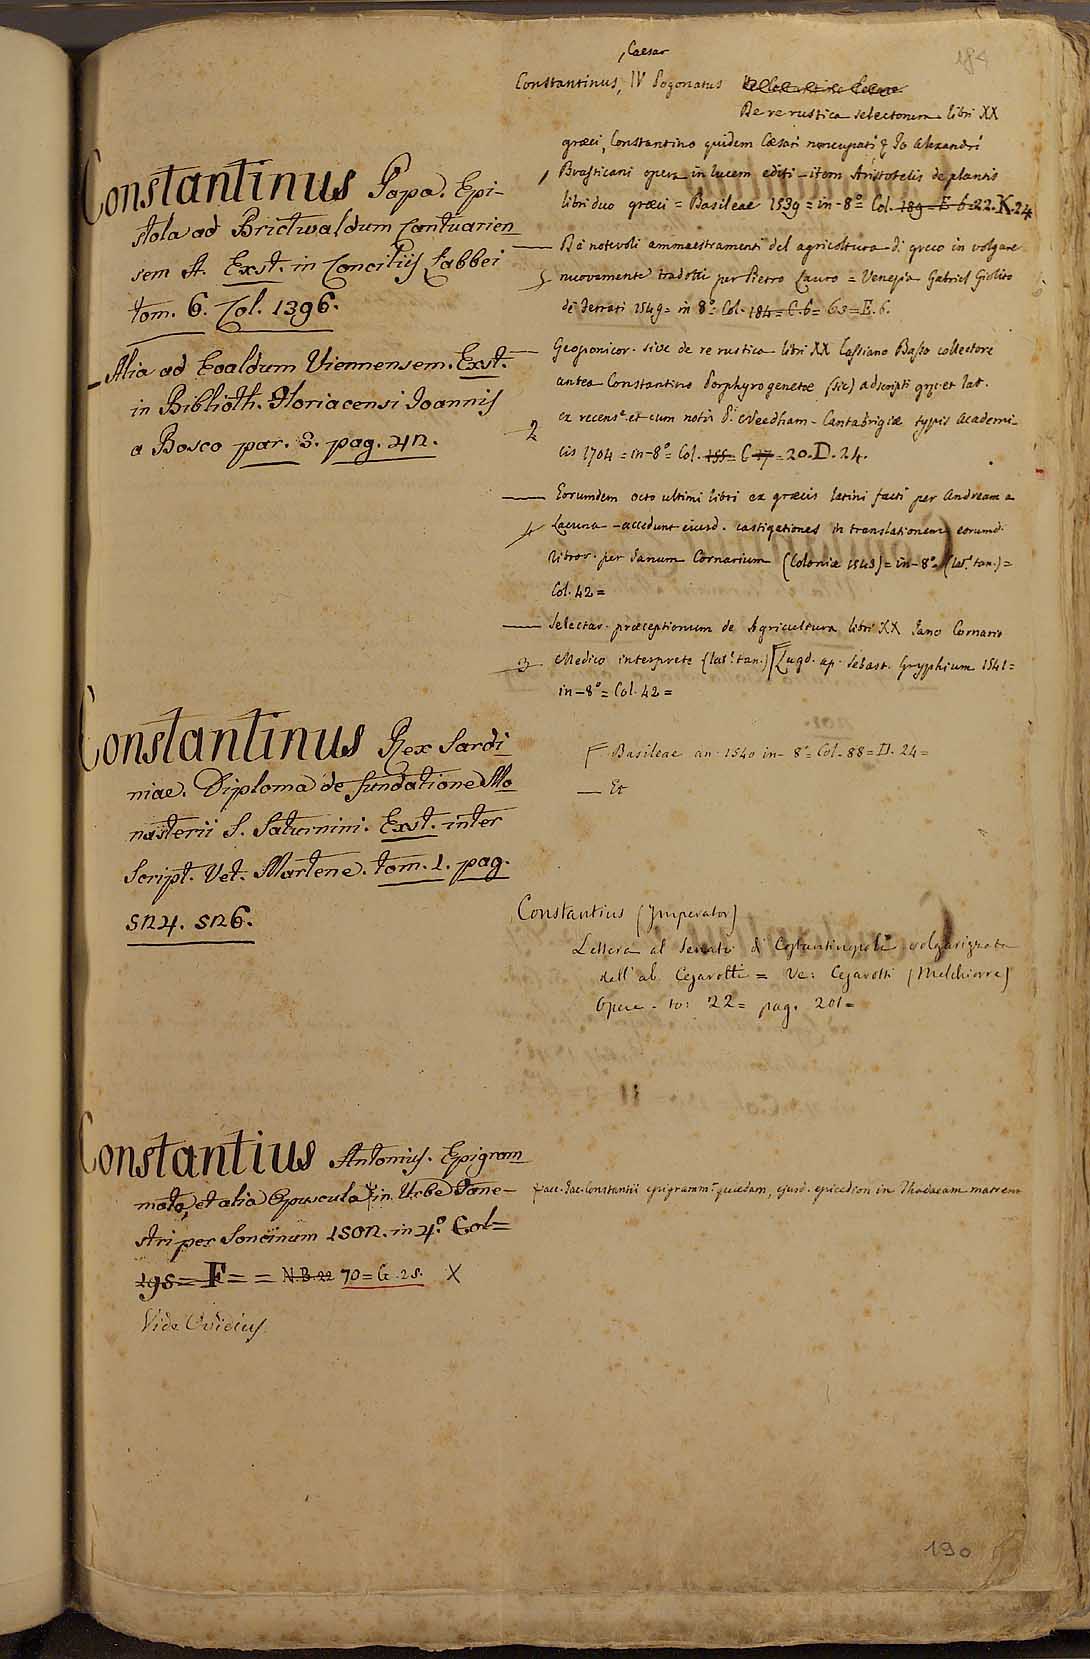 184
Constantinus Papa. Epi-
stola ad Brictwaldum Cantuarien
sem A. Exst. in Conciliis Labbei
tom. 6. Col. 1396.
Alia ad Eoaldum Viennensem. Exst.
in Biblioth. Floriacensi Joannis
a Bosco par. 3. pag. 42.
Constantinus Rex Sardi
niae. Diploma de fundatione Mo
nasterii S. Saturnini. Exst. inter
Script. Vet. Martene. tom. 1. pag.
524. 526.
Constantius Antonius. Epigram
mata, et alia Opuscula in Urbe Fane-
stri per Soncinum 1502. in 4.º Col=
195= F= = N.B. 22 70=G.25. X
Vide Ovidius.
, Caesar
Constantinus, IV Pogonatus
De re rustica selectorum libri XX
græci, Constantino quidem Cæsari nuncupati & Io Alexandri
Brassicani opera in lucem editi - item Aristotelis de plantis
libri duo græci = Basileae 1539 = in-8º= Col. 189=E 6 22. K.24
— De notevoli ammaestramenti del agricoltura di greco in volgare
5 nuovamente tradotti per Pietro Lauro = Venezia Gabriel Giolito
de Ferrari 1549= in 8º= Col. 184= C.6= 63=E.6.
— Geoponicor. sive de re rustica libri XX Cassiano Basso collectore
antea Constantino Porphyrogenetæ (sic) adscripti gr. et lat.
2 ex recens.e et cum notis P. Needham - Cantabrigiæ typis Academi-
cis 1704 = in-8º= Col. 155= C 17 = 20. D. 24.
— Eorumdem octo ultimi libri ex græcis latini facti per Andream a
4 Lacuna - accedunt eiusd. castigationes in translationem eorumd.
libror. per Janum Cornarium (Coloniæ 1543)= in-8º= (lat. tan.)=
Col. 42=
— Selectar. præceptionum de Agricultura libri XX Jano Cornario
3 Medico interprete (lat. tan.) Lugd. ap. Sebast. Gryphium 1541=
in-8º= Col. 42=
Basileae an. 1540 in-8º= Col. 88= D. 24=
— Et
Constantius (Imperator)
Lettera al Senato di Costantinopoli volgarizzata
dall'ab. Cesarotti = Ve: Cesarotti (Melchiorre)
Opere - to: 22= pag. 201=
acc. Jac. Constantii epigramm. quædam, ejusd. epicedion in Thadæam matrem
190